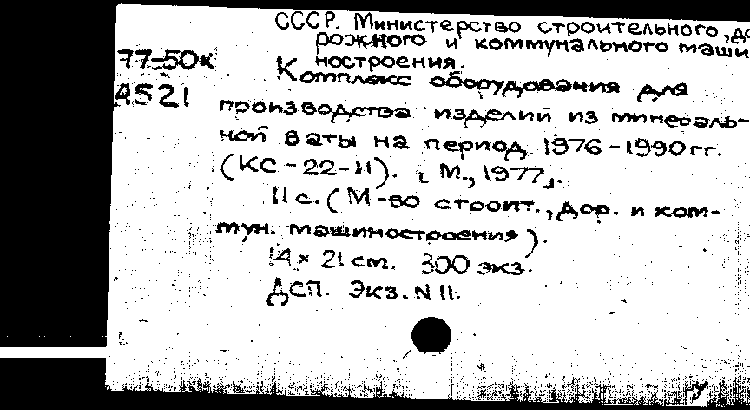 СССР. Министерство строительного, до
рожного и коммунального маши
ностроения.
77-50к
Комплекс оборудования для
А521
производства изделий из минераль-
ной ваты на период 1976-1990гг.
(КС-22-11). [М., 1977].
11 с. (М-во строит., дор. и ком-
мун. машиностроения).
14 × 21 см. 300 экз.
ДСП. Экз. N 11.